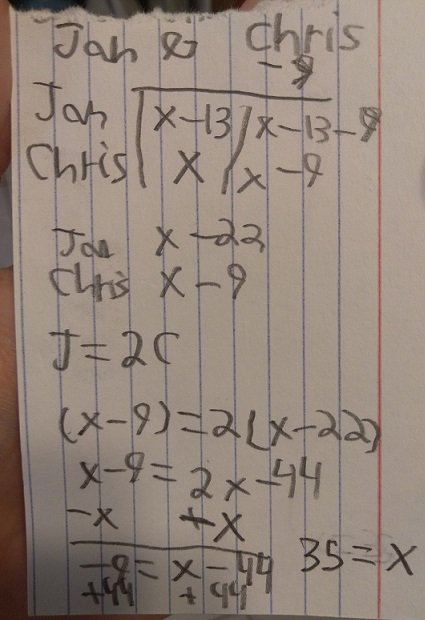 Jan & Chris
-9
Jan x-13 x-13-9
Chris x x-9
Jan x-22
Chris x-9
J=2C
(x-9)=2(x-22)
x-9=2x-44
-x +x
-9=x-44 35=x
+44 +44